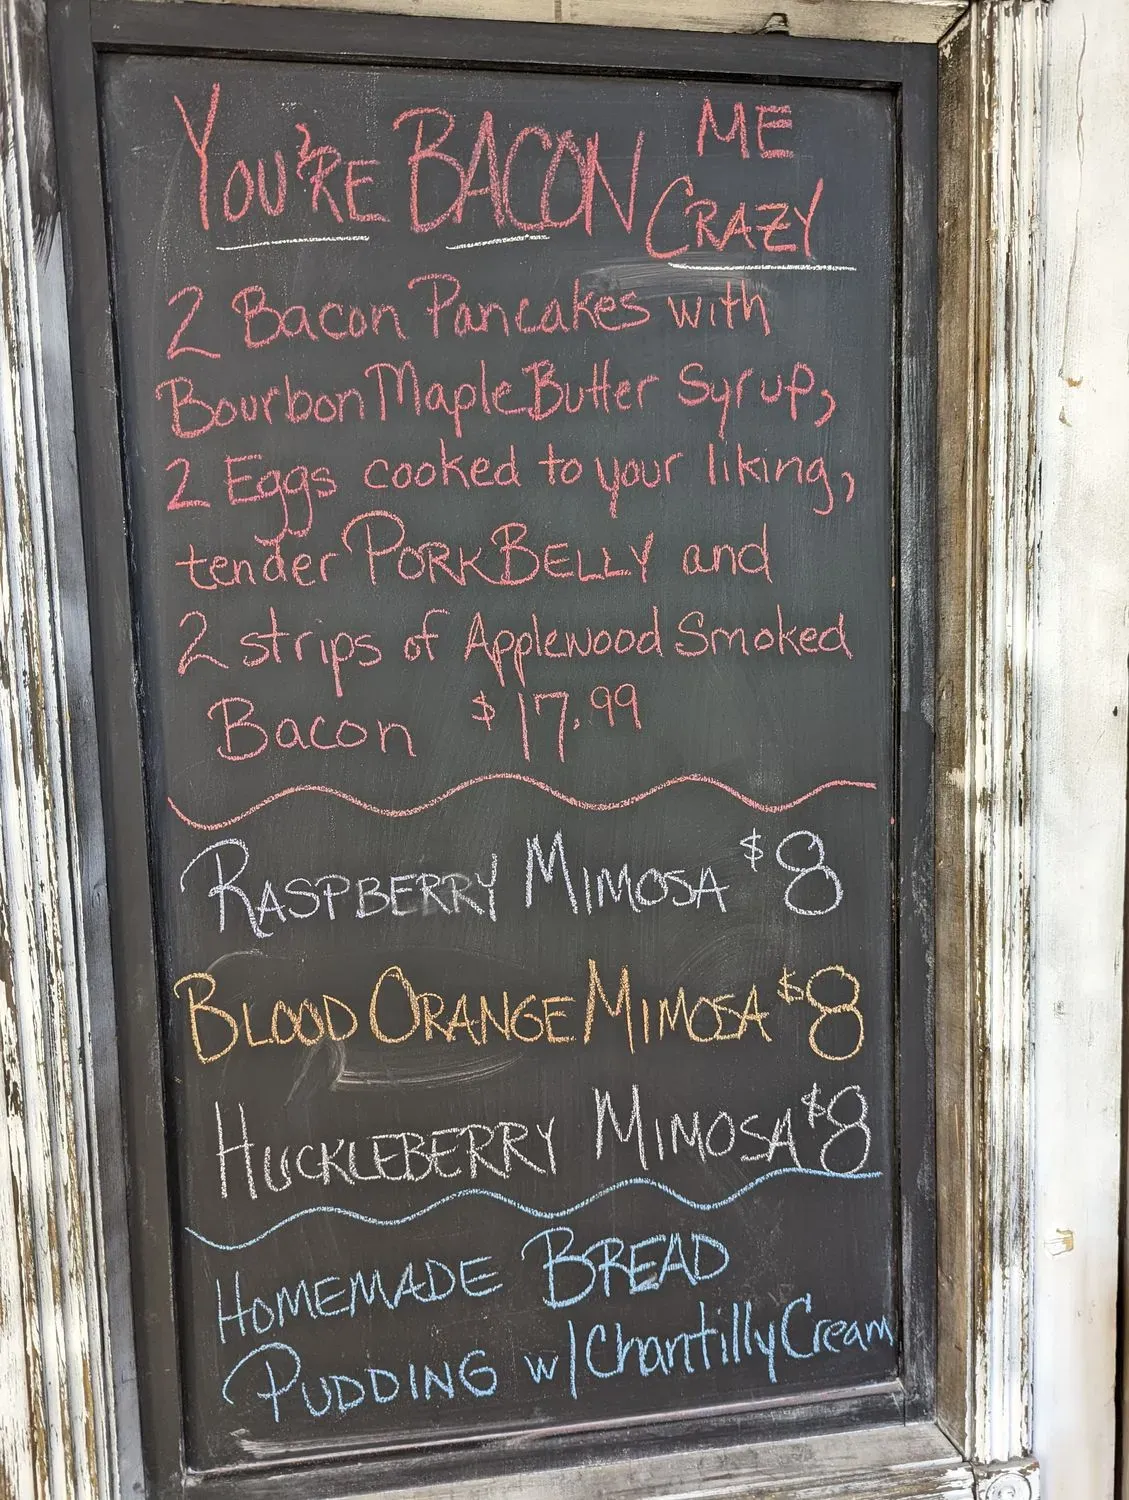 YOU'RE BACON ME
CRAZY
2 Bacon Pancakes with
Bourbon Maple Butter Syrup,
2 Eggs cooked to your liking,
tender PORK BELLY and
2 strips of Applewood Smoked
Bacon $17.99
RASPBERRY MIMOSA $8
BLOOD ORANGE MIMOSA $8
HUCKLEBERRY MIMOSA $8
HOMEMADE BREAD
PUDDING w/ Chantilly Cream